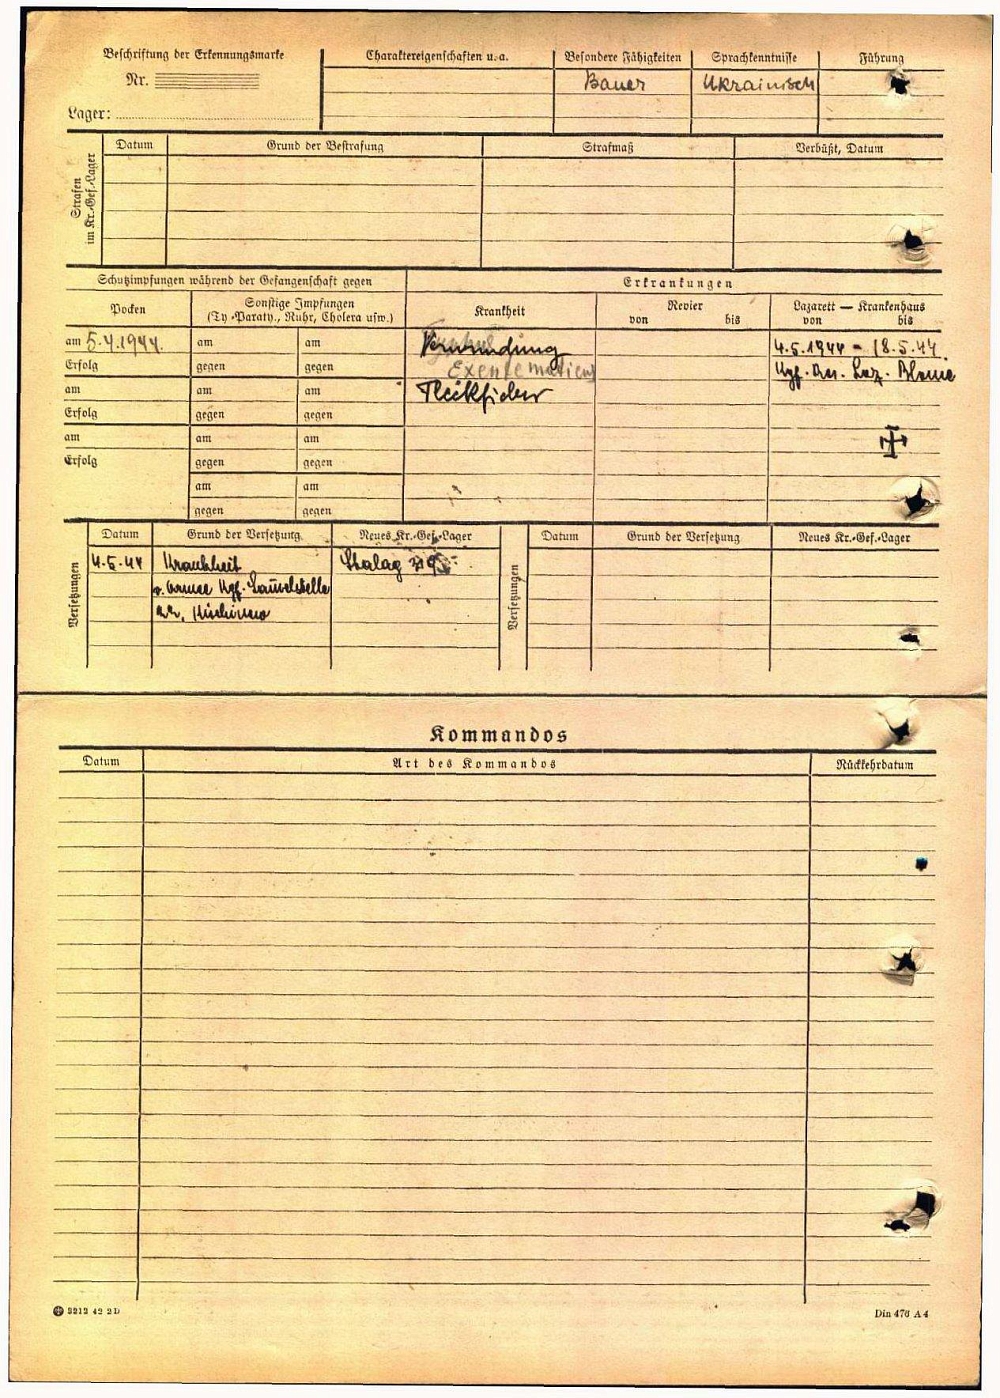 Beschriftung der Erkennungsmarke
Nr.
Lager:
Charaktereigenschaften u. a.
Besondere Fähigkeiten
Sprachkenntnisse
Führung
Bauer
Ukrainisch
Strafen
im Kr.-Gef.-Lager
Datum
Grund der Bestrafung
Strafmaß
Verbüßt, Datum
Schutzimpfungen während der Gefangenschaft gegen
Erkrankungen
Pocken
Sonstige Impfungen
(Ty.-Paraty., Ruhr, Cholera usw.)
Krankheit
Revier
von bis
Lazarett — Krankenhaus
von bis
am 5.4.1944. am am Verwundung 4.5.1944 - 18.5.44.
Erfolg gegen gegen
am am am Fleckfieber
Erfolg gegen gegen
am am am
Erfolg gegen gegen
am am
gegen gegen
Versetzungen
Datum
Grund der Versetzung
Neues Kr.-Gef.-Lager
Versetzungen
Datum
Grund der Versetzung
Neues Kr.-Gef.-Lager
4.5.44 Krankheit Stalag
v. Armee Kgf.-Sammelstelle
Kischinew
Kommandos
Datum
Art des Kommandos
Rückkehrdatum
3212 42 2D
Din 476 A4